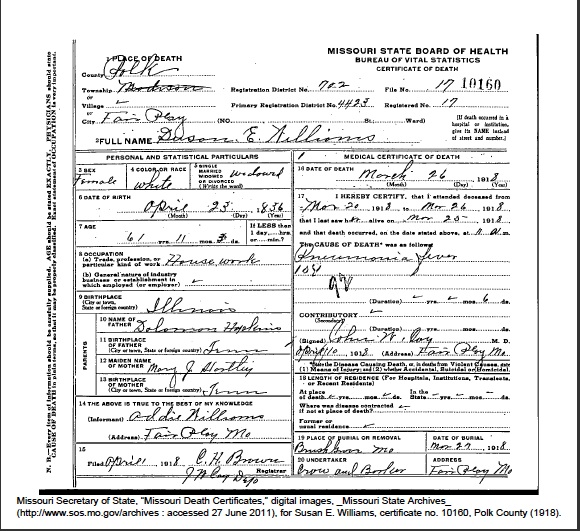 MISSOURI STATE BOARD OF HEALTH
BUREAU OF VITAL STATISTICS
CERTIFICATE OF DEATH
1 PLACE OF DEATH
County Polk
Township Madison Registration District No. 702 File No. 17 10160
or
Village Primary Registration District No. 4423 Registered No. 17
or
City Fair Play (NO. St.; Ward)
(If death occurred in a hospital or institution, give its NAME instead of street and number.)
2 FULL NAME Susan E. Williams
PERSONAL AND STATISTICAL PARTICULARS
3 SEX Female
4 COLOR OR RACE White
5 SINGLE MARRIED WIDOWED OR DIVORCED (Write the word) Widowed
6 DATE OF BIRTH April 23 1836
(Month) (Day) (Year)
7 AGE yrs. 11 mos. 3 ds.
If LESS than 1 day,....hrs. or....min.?
8 OCCUPATION
(a) Trade, profession, or particular kind of work House work
(b) General nature of industry business or establishment in which employed (or employer)
9 BIRTHPLACE
(City or town, State or foreign country) Illinois
PARENTS
10 NAME OF FATHER Solomon Hopkins
11 BIRTHPLACE OF FATHER
(City or town, State or foreign country) Tenn
12 MAIDEN NAME OF MOTHER Mary J.
13 BIRTHPLACE OF MOTHER
(City or town, State or foreign country) Tenn
14 THE ABOVE IS TRUE TO THE BEST OF MY KNOWLEDGE
(Informant) Addie Williams
(Address) Fair Play Mo
15
Filed April 1918 C. H. Brown
Registrar
MEDICAL CERTIFICATE OF DEATH
16 DATE OF DEATH March 26 1918
(Month) (Day) (Year)
17 I HEREBY CERTIFY, that I attended deceased
from Mar 20 1918 to Mar 26 1918
that I last saw her alive on Mar 25 1918
and that death occurred, on the date stated above, at m.
The CAUSE OF DEATH* was as follows:
Pneumonia fever
(Duration) yrs. mos. 6 ds.
CONTRIBUTORY
(Secondary)
(Duration) yrs. mos. ds.
(Signed) John W. M. D.
1918 (Address) Fair Play Mo
*State the Disease Causing Death, or, in deaths from Violent Causes, state (1) Means of Injury; and (2) whether Accidental, Suicidal or Homicidal.
18 LENGTH OF RESIDENCE (For Hospitals, Institutions, Transients, or Recent Residents)
At place of death yrs. mos. ds. In the State yrs. mos. ds.
Where was disease contracted if not at place of death?
Former or usual residence
19 PLACE OF BURIAL OR REMOVAL
DATE OF BURIAL
Mo Mar 27 1918
20 UNDERTAKER
ADDRESS
Fair Play Mo
Missouri Secretary of State, "Missouri Death Certificates," digital images, _Missouri State Archives_
(http://www.sos.mo.gov/archives : accessed 27 June 2011), for Susan E. Williams, certificate no. 10160, Polk County (1918).